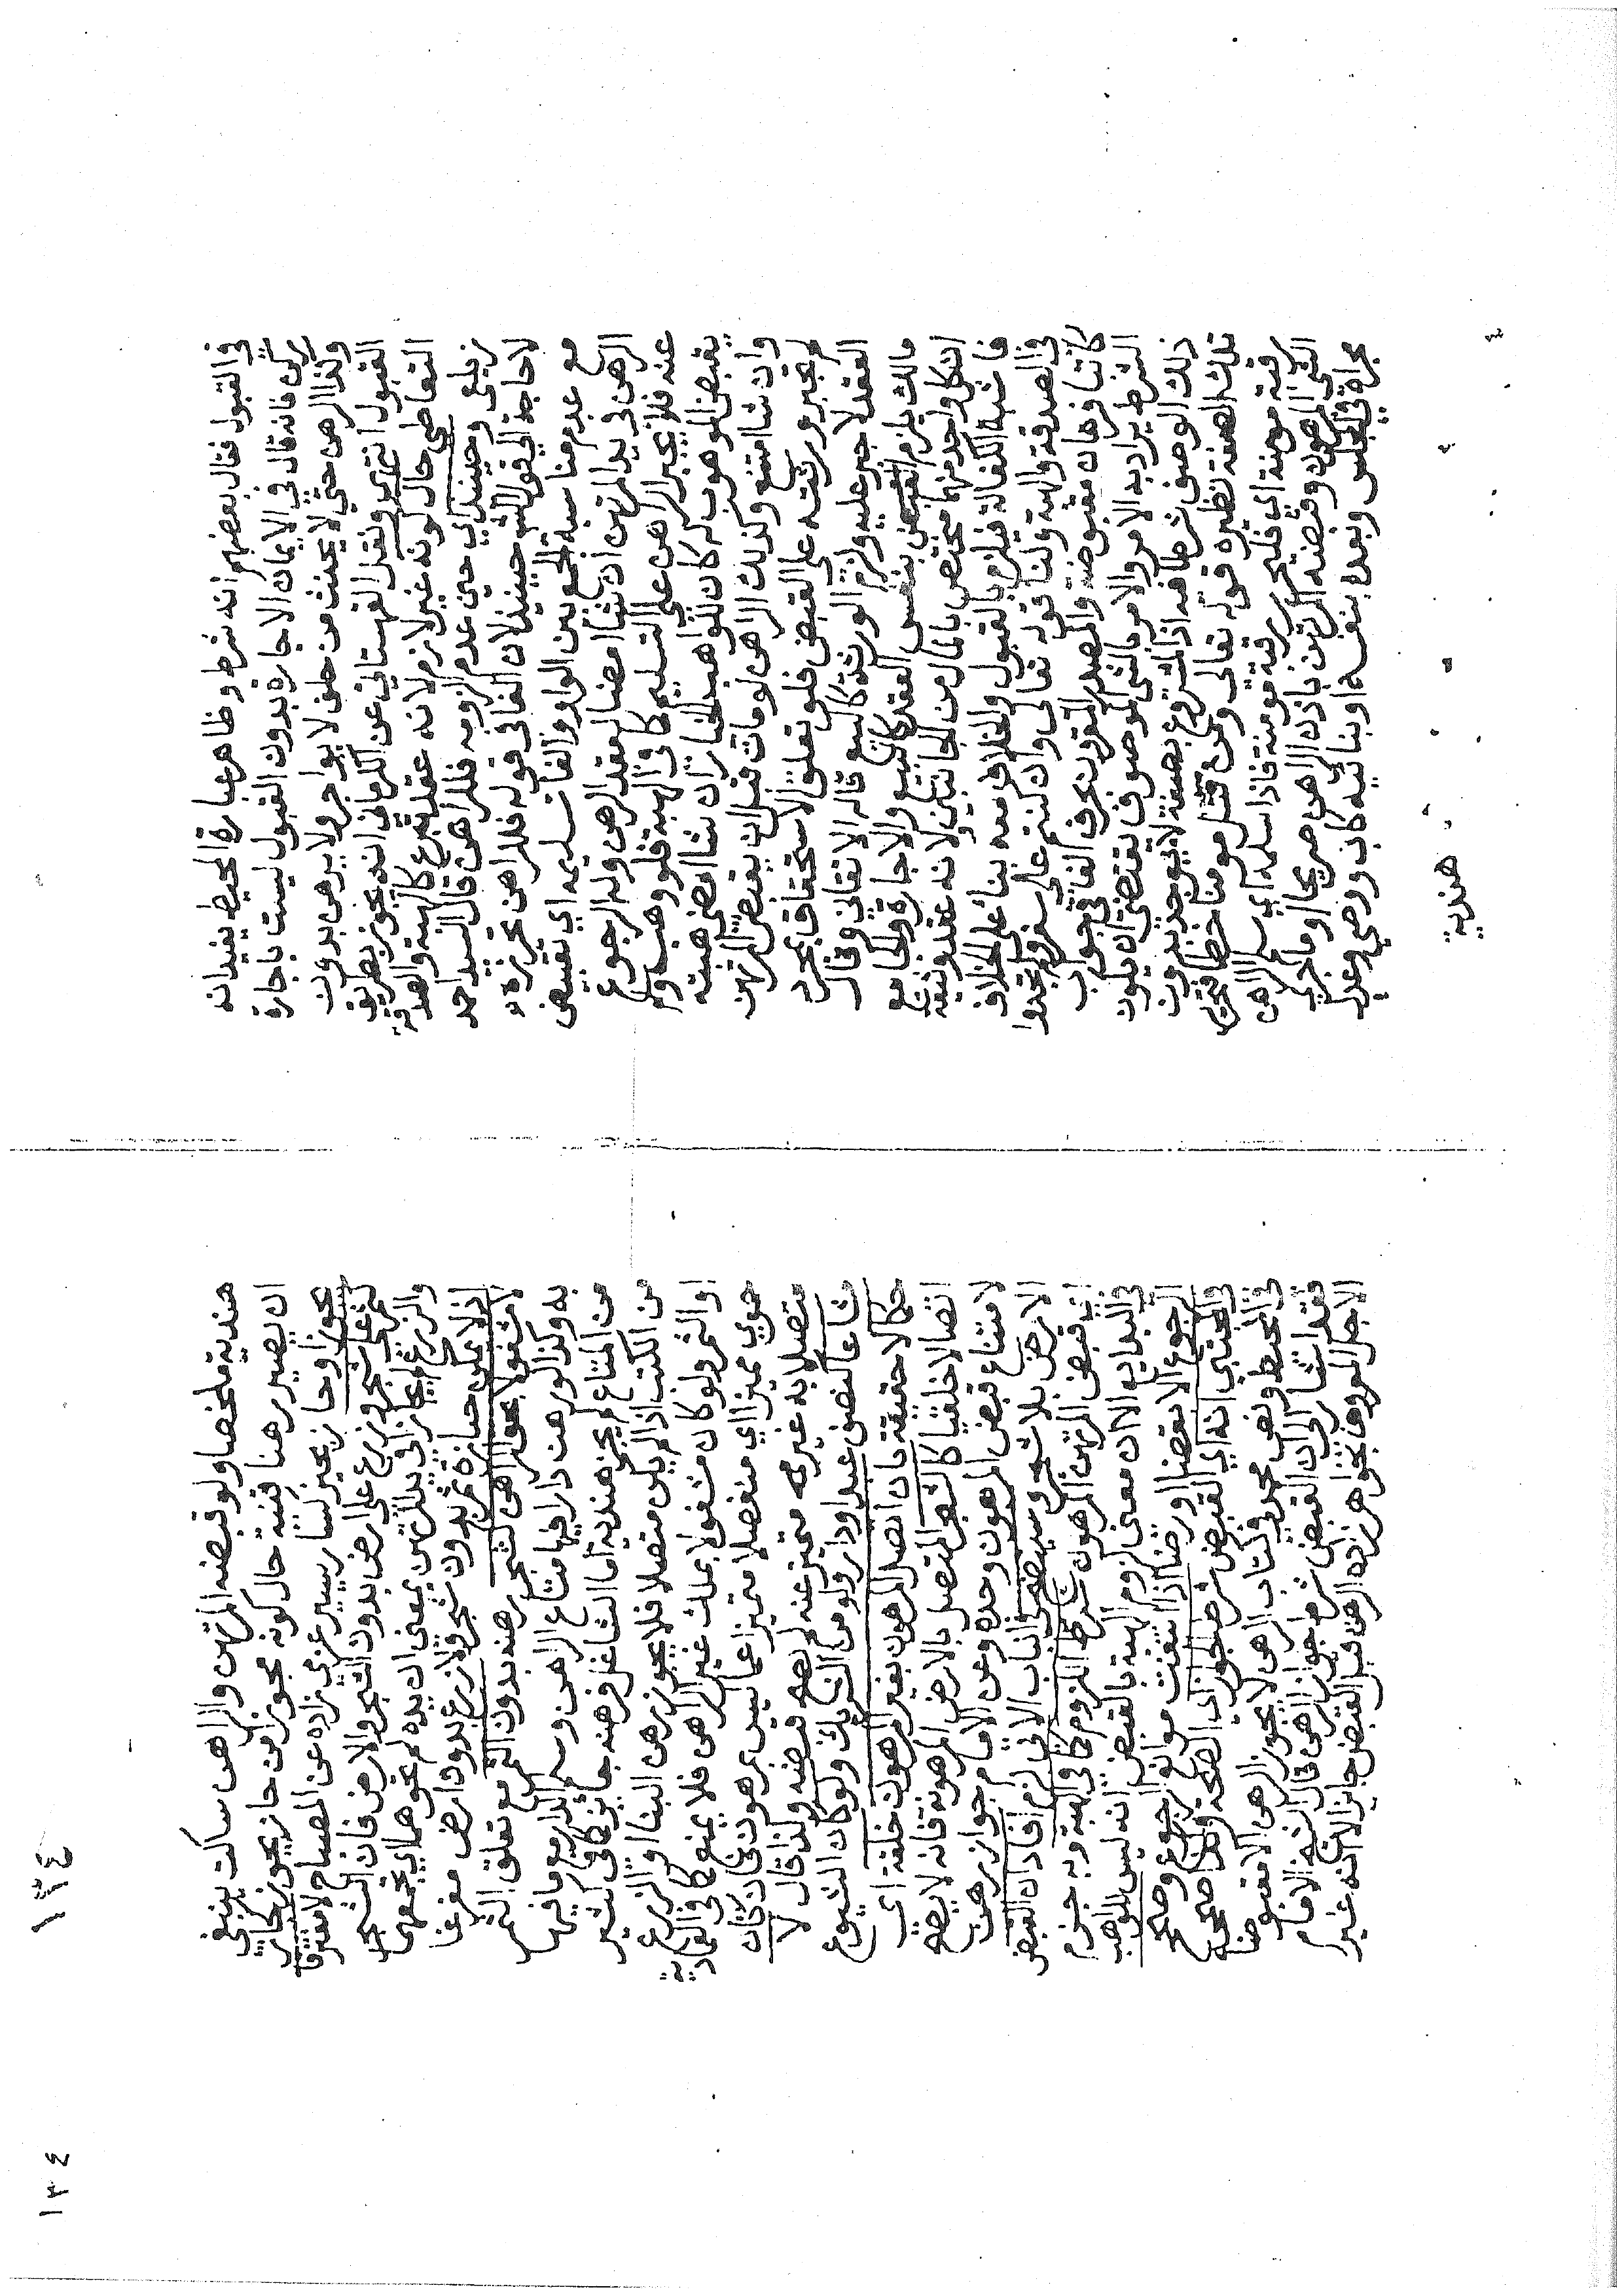 في القبول فقال بعضهم انه شرط وظاهر عبارة المحيط يفيد انه
ركن فانه قال في الايمان الاجارة بدون القبول ليست باجارة
وكذا الرهن حتى لا يحنث من حلف لا يواجر ولا يرهن بدون
القبول انتهى ونقل القهستاني عن الكرماني انه يجوز بطريق
التعاطي حال كونه غير لازم لانه عقد تبرع كالهبة والصدقة
زيلعي وحينئذ اي حين عدم لزومه فللراهن قال السيد احمد
لا حاجة الى قوله حينئذ لان الفا في قوله فللراهن محررة
مع عدم مناسبة الجمع بين الواو والفا تسليمه اي تقبيض
الرهن في يد المرتهن ان شا امضا لعقد الرهن وله الرجوع
عنه فلا يجبر الراهن على التسليم كما في الهبة فلو وهب ولم
يقبض الموهوب له كان للواهب الخيار ان شا امضى هبته
وان شا امتنع وكذلك الراهن لو مات قبل ان يقبض المرتهن
لم تجبر ورثته على القبض فلو تعلق الاستحقاق بمجرد
العقد لا جبر عليه ولزم الورثة كالبيع قاله الاتقاني وقال
مالك يلزم القبض بنفس العقد كالبيع والاجارة والجامع
ان كل واحد منهما مختص بالمال من الجانبين ولانه عقد وثيقة
فاشبه الكفالة فيلزم بالقبول والخلاف معه بنا على الخلاف
في الصدقة والهبة ولنا قوله تعالى وان كنتم على سفر ولم تجدوا
كاتبا فرهان مقبوضة والمصدر المقرون بحرف الفا في جواب
الشرط يراد به الامر والامر بالشى الموصوف يقتضي ان يكون
ذلك الوصف شرطا فيه اذ المشروع بصفة لا يوجد بدون
تلك الصفة نظيره قوله تعالى ومن قتل مومنا خطا فتحرير
رقبة مومنة اي فليحرر رقبة مومنة فاذا سلمه اي سلم الراهن
الشى المرهون وقبضه المرتهن باذن الراهن صريحا او ما جرى
مجراه في المجلس وبعده بنفسه او بنائبه كاب ووصي وعدل
هندية
هندية ملخصا ولو قبضه المرتهن والراهن ساكت ينبغي
ان يصير رهنا قنية حال كونه محوزا من حاز يحوز كما في
يجوز او حاز يحيز كسار يسير عزمي زاده عن المصباح لا متفرقا
كثمر على شجر وزرع على ارض بدون الشجر والارض فان الشجر
والزرع لم يحازا في يد المرتهن بمعنى ان يده لم تحوهما اي تجمعهما
اذ لا يمكن حيازة ثمر بدون شجر ولا زرع بدون ارض مفرغا
لا مشغولا بحق الراهن كشجر رهنه بدون الثمر مع تعلق الثمر
به وكذا لو رهن دارا فيها متاع الراهن وسلم الدار مع ما فيها
من المتاع لم يجز هندية اما الشاغل فرهنه جائز كما في كثير
من الكتب اذا لم يكن متصلا فلا يجوز رهن البنا او الزرع
او الثمر ولو كان مشغولا بملك غير الراهن فلا يمنع كما في العمادية
حموي مميزا اي منفصلا متميزا عما ليس بمرهون فان كان
متصلا به غير متميز عنه لم يصح قبضه ولذا قال لا
مشاعا كنصف عبد او دار ولو من الشريك ولو كان الشيوع
حكما لا حقيقة بان اتصل المرهون بغير المرهون خلقة اي
اتصالا خلقيا كالشجر المتصل بالارض المرهونة فانه لا يصح
لامتناع قبض المرهون وحده وعن الامام جواز رهن
الارض بلا شجر وسيتضح في الباب الاتي لزم افاد ان القبض
اي قبض المرتهن المرهون شرط اللزوم كما في الهبة وبه جزم
في البدايع الا ان معنى لزوم الهبة بالقبض انه ليس للواهب
الرجوع الا بقضا او رضا اذا انتفت موانع الرجوع وصحح
في المجتبى انه اي القبض شرط الجواز اي الصحة وكذا صححه
في المحيط ونص محمد في كتاب الرهن لا يجوز الرهن الا مقبوضا
فقد اشار الى ان القبض شرط جواز الرهن قال الشيخ الامام
الاجل المعروف بخواهر زاده الرهن قبل القبض جايز الا انه غير
١٣٤
١٣٤